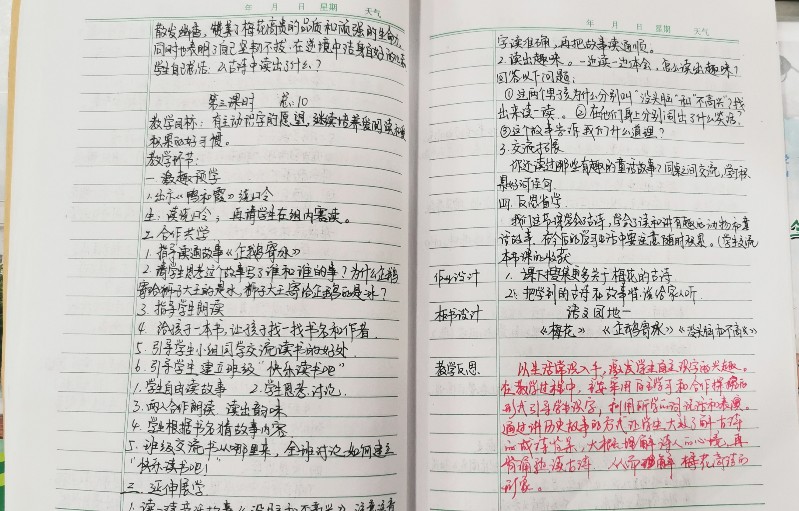 年 月 日 星期 天气
散发幽香，赞美了梅花高贵的品质和顽强的生命力，
同时也表明了自己坚韧不拔，在逆境中洁身自好的
学生自己书法 2.古诗中读出了什么？
第三课时 总:10
教学目标：有主动识字的愿望，继续培养爱阅读
的好习惯。
教学环节：
一 激趣预学
1.出示《鸭和霞》绕口令
生：读绕口令，再请学生在组内赛读。
二.合作共学
1.指导读通故事《企鹅寄冰》
2.请学生思考这个故事写了谁和谁的事？为什么企鹅
寄给狮子大王的是水，狮子大王寄给企鹅的是冰？
3.指导学生朗读
4.给孩子一本书，让孩子找一找书名和作者
5.引导学生小组同学交流读书的好处
6.引导学生建立班级“快乐读书吧”
1.学生自由读故事 2.学生思考讨论.
3.两人合作朗读 读出韵味
4.学生根据书名猜故事内容
5.班级交流书从哪里来，全评讨论如何建立
“快乐读书吧！”
三.延伸展学
1.读一读
年 月 日 星期 天气
字读准确，再把故事读通顺。
2.读出趣味。一边读一边体会，怎么读出趣味？
回答以下问题：
①这两个男孩为什么分别叫“没头脑”和“不高兴”？找
出来读一读。②在他们身上分别闹出了什么笑话？
③这个故事告诉我们什么道理？
3.交流拓展
你还读过哪些有趣的童话故事？同桌之间交流，学习积
累好词佳句。
四.反思省学
我们这节课学会古诗，学会了读和讲有趣的动物和童
话故事，在今后的学习生活中要注意随时积累。（学生交流
本节课的收获
作业设计 1.课下搜集更多关于梅花的古诗
2.把学到的古诗和故事情 给家人听.
板书设计 语文园地一
《梅花》《企鹅寄冰》《没头脑和不高兴》
教学反思 从生活常识入手，激发学生自主识字的兴趣。
在教学过程中，主要采用自主学习和合作探究的
形式引导学生识字，利用所学
通过讲历史故事的方式让学生大致了解古诗
的成作背景，大概理解诗人的心境，再
有情地读古诗 从而理解梅花高洁的
形象。